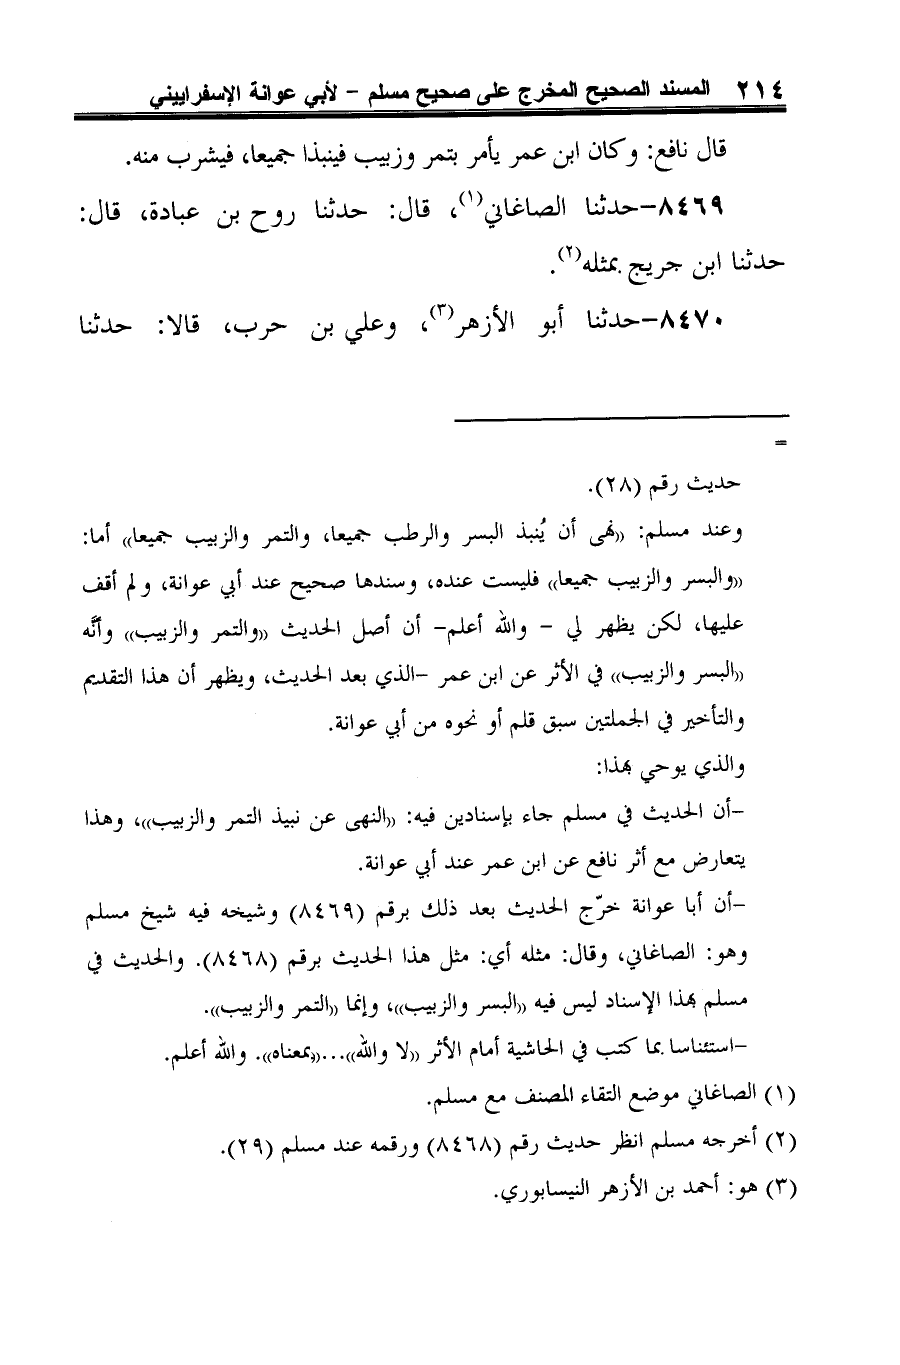 ٢١٤ المسند الصحيح المخرج على صحيح مسلم - لأبي عوانة الإسفراييني
قال نافع: وكان ابن عمر يأمر بتمر وزبيب فينبذا جميعا، فيشرب منه.
٨٤٦٩-حدثنا الصاغاني(١)، قال: حدثنا روح بن عبادة، قال:
حدثنا ابن جريج بمثله(٢).
٨٤٧٠-حدثنا أبو الأزهر(٣)، وعلي بن حرب، قالا: حدثنا
=
حديث رقم (٢٨).
وعند مسلم: ((نهى أن يُنبذ البسر والرطب جميعا، والتمر والزبيب جميعا)) أما:
((والبسر والزبيب جميعا)) فليست عنده، وسندها صحيح عند أبي عوانة، ولم أقف
عليها، لكن يظهر لي - والله أعلم- أن أصل الحديث ((والتمر والزبيب)) وأنَّه
((البسر والزبيب)) في الأثر عن ابن عمر -الذي بعد الحديث، ويظهر أن هذا التقديم
والتأخير في الجملتين سبق قلم أو نحوه من أبي عوانة.
والذي يوحي بهذا:
-أن الحديث في مسلم جاء بإسنادين فيه: ((النهى عن نبيذ التمر والزبيب))، وهذا
يتعارض مع أثر نافع عن ابن عمر عند أبي عوانة.
-أن أبا عوانة خرّج الحديث بعد ذلك برقم (٨٤٦٩) وشيخه فيه شيخ مسلم
وهو: الصاغاني، وقال: مثله أي: مثل هذا الحديث برقم (٨٤٦٨). والحديث في
مسلم بهذا الإسناد ليس فيه ((البسر والزبيب))، وإنما ((التمر والزبيب)).
-استئناسا بما كتب في الحاشية أمام الأثر ((لا والله))...((بمعناه)). والله أعلم.
(١) الصاغاني موضع التقاء المصنف مع مسلم.
(٢) أخرجه مسلم انظر حديث رقم (٨٤٦٨) ورقمه عند مسلم (٢٩).
(٣) هو: أحمد بن الأزهر النيسابوري.